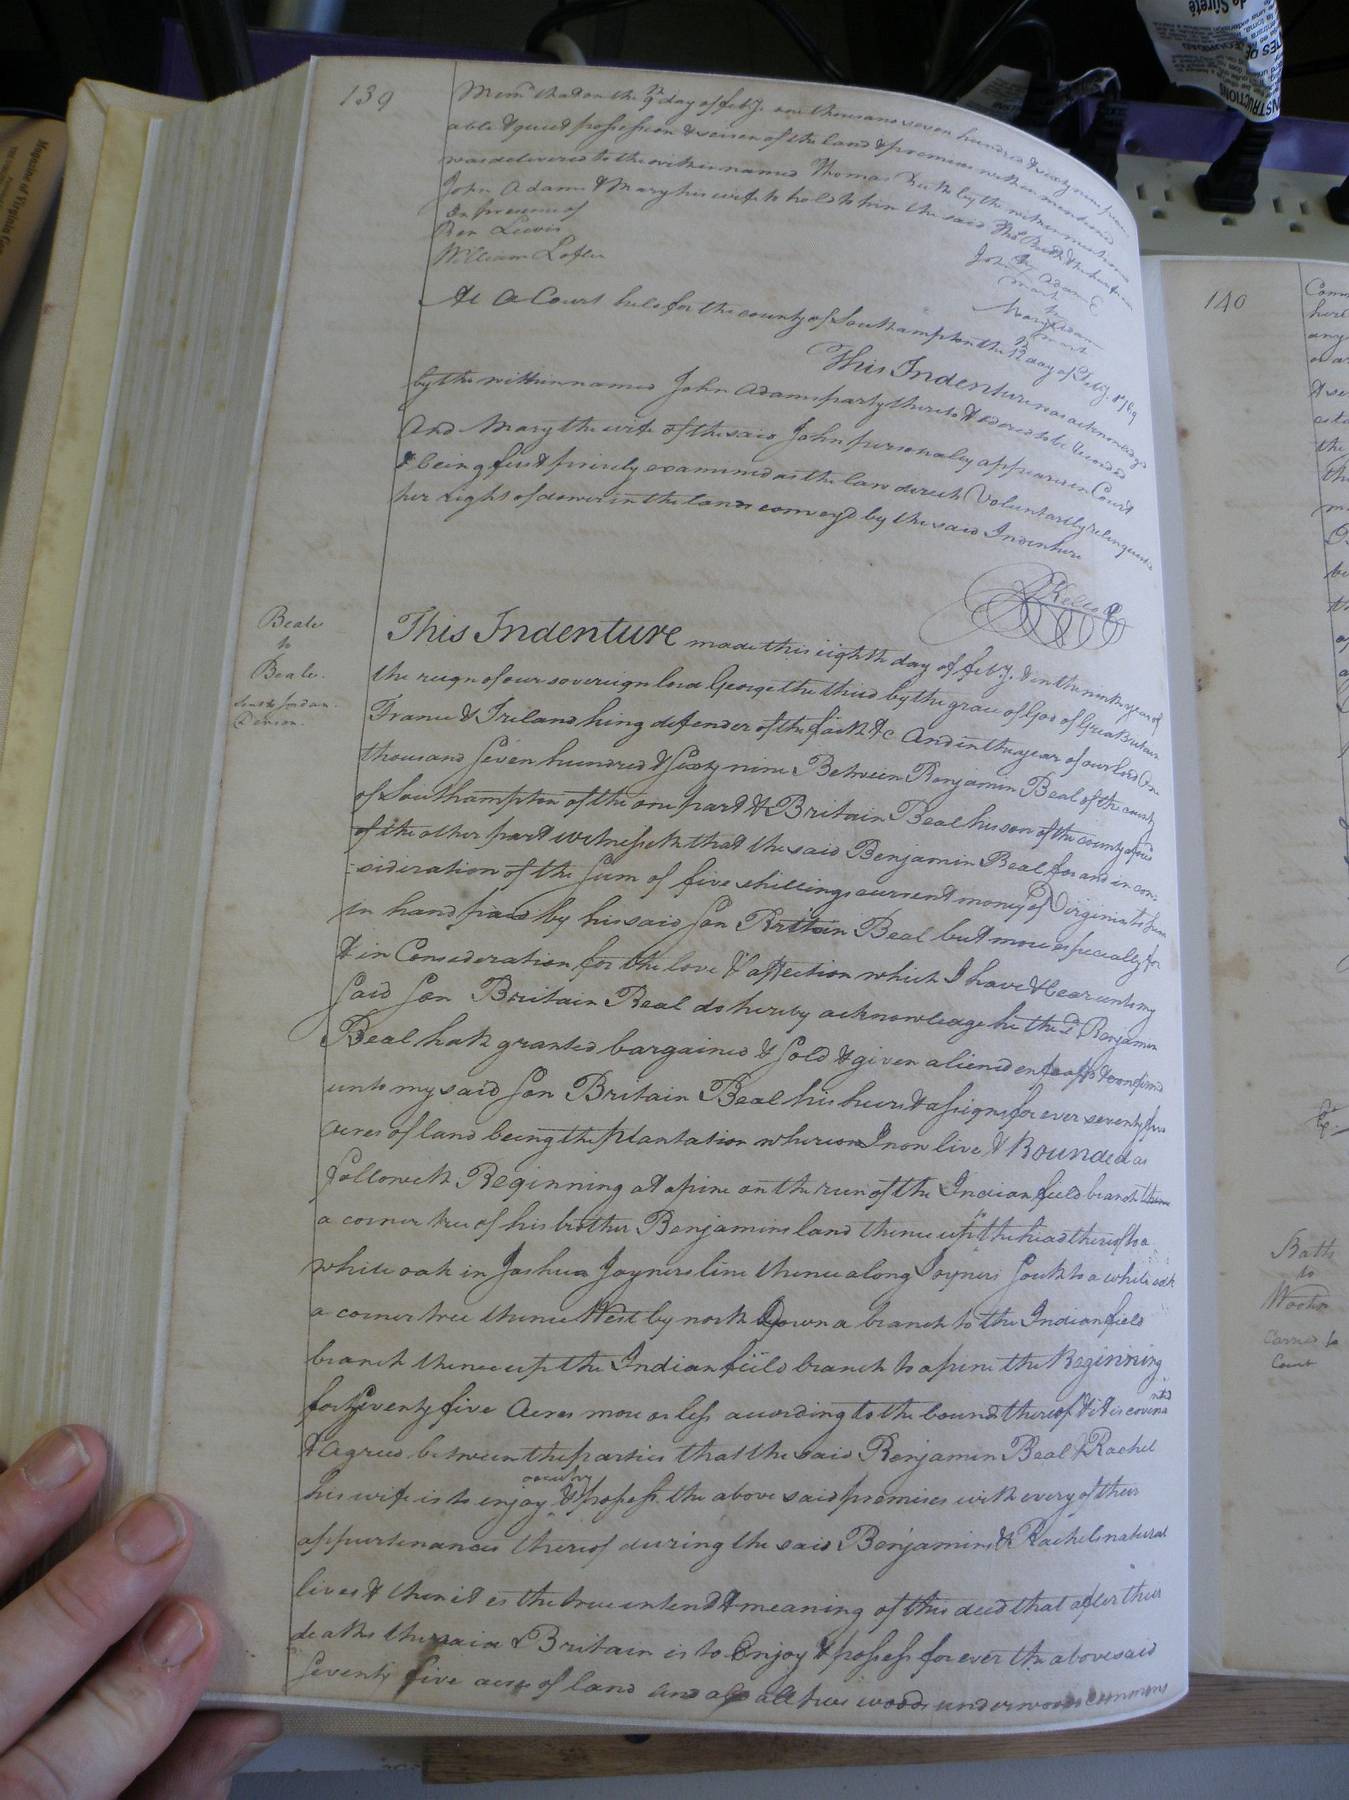 139
Memo that on the 9th day of Feby. one thousand seven hundred & sixty nine
able & quiet possession & seisen of the land & premises within mentioned
was delivered to the within named Thomas by the within
John Adams & Mary his wife to hold to him the said Thos
In presence of
Ben Lewis
William Lofter
John Adams
mark
Mary Adams
mark
At a Court held for the county of Southampton the day of Feby. 1769
This Indenture was acknowledged
by the within named John Adams party thereto & ordered to be recorded
And Mary the wife of the said John personaley appeared in Court
& being first privily examined as the law directs Voluntarily relinquished
her right of dower in the lands conveyd by the said Indenture
Beale
to
Beale.
This Indenture made this eighth day of Feby. & in the ninth year of
the reign of our sovereign lord George the third by the grace of God of Great Britain
France & Ireland king defender of the faith &c And in the year of our lord One
thousand Seven hundred & Sixty nine Between Benjamin Beal of the county
of Southampton of the one part & Britain Beal his son of the county aforesd
of the other part witnesseth that the said Benjamin Beal for and in con
-sideration of the Sum of five shillings current money of Virginia to him
in hand paid by his said Son Brittain Beal but more especially for
& in Consideration for the love & affection which I have & bear unto my
Said Son Britain Beal do hereby acknowledge he the sd Benjamin
Beal hath granted bargained & Sold & given aliened enfeoff'd & confirmd
unto my said Son Britain Beal his heirs & assigns for ever seventy five
acres of land being the plantation whereon I now live & Bounded as
followeth Beginning at a pine on the run of the Indian field branch thence
a corner tree of his brother Benjamins land thence up the head thereof to a
white oak in Joshua Joyners line thence along Joyners South to a white oak
a corner tree thence West by north Down a branch to the Indian field
branch thence up the Indian field branch to a pine the Beginning
for Seventy five Acres more or less according to the bounds thereof & it is covina
nted
& Agreed between the parties that the said Benjamin Beal & Rachel
occupy
his wife is to enjoy & possess the above said premises with every of their
appurtenances thereof during the said Benjamin & Rachels natural
lives & then it is the true intent & meaning of this deed that after their
deaths the said Britain is to Enjoy & possess for ever the abovesaid
Seventy five acres of land and all trees woods underwoods commons
140
the
Baths
to
Carried to
Court